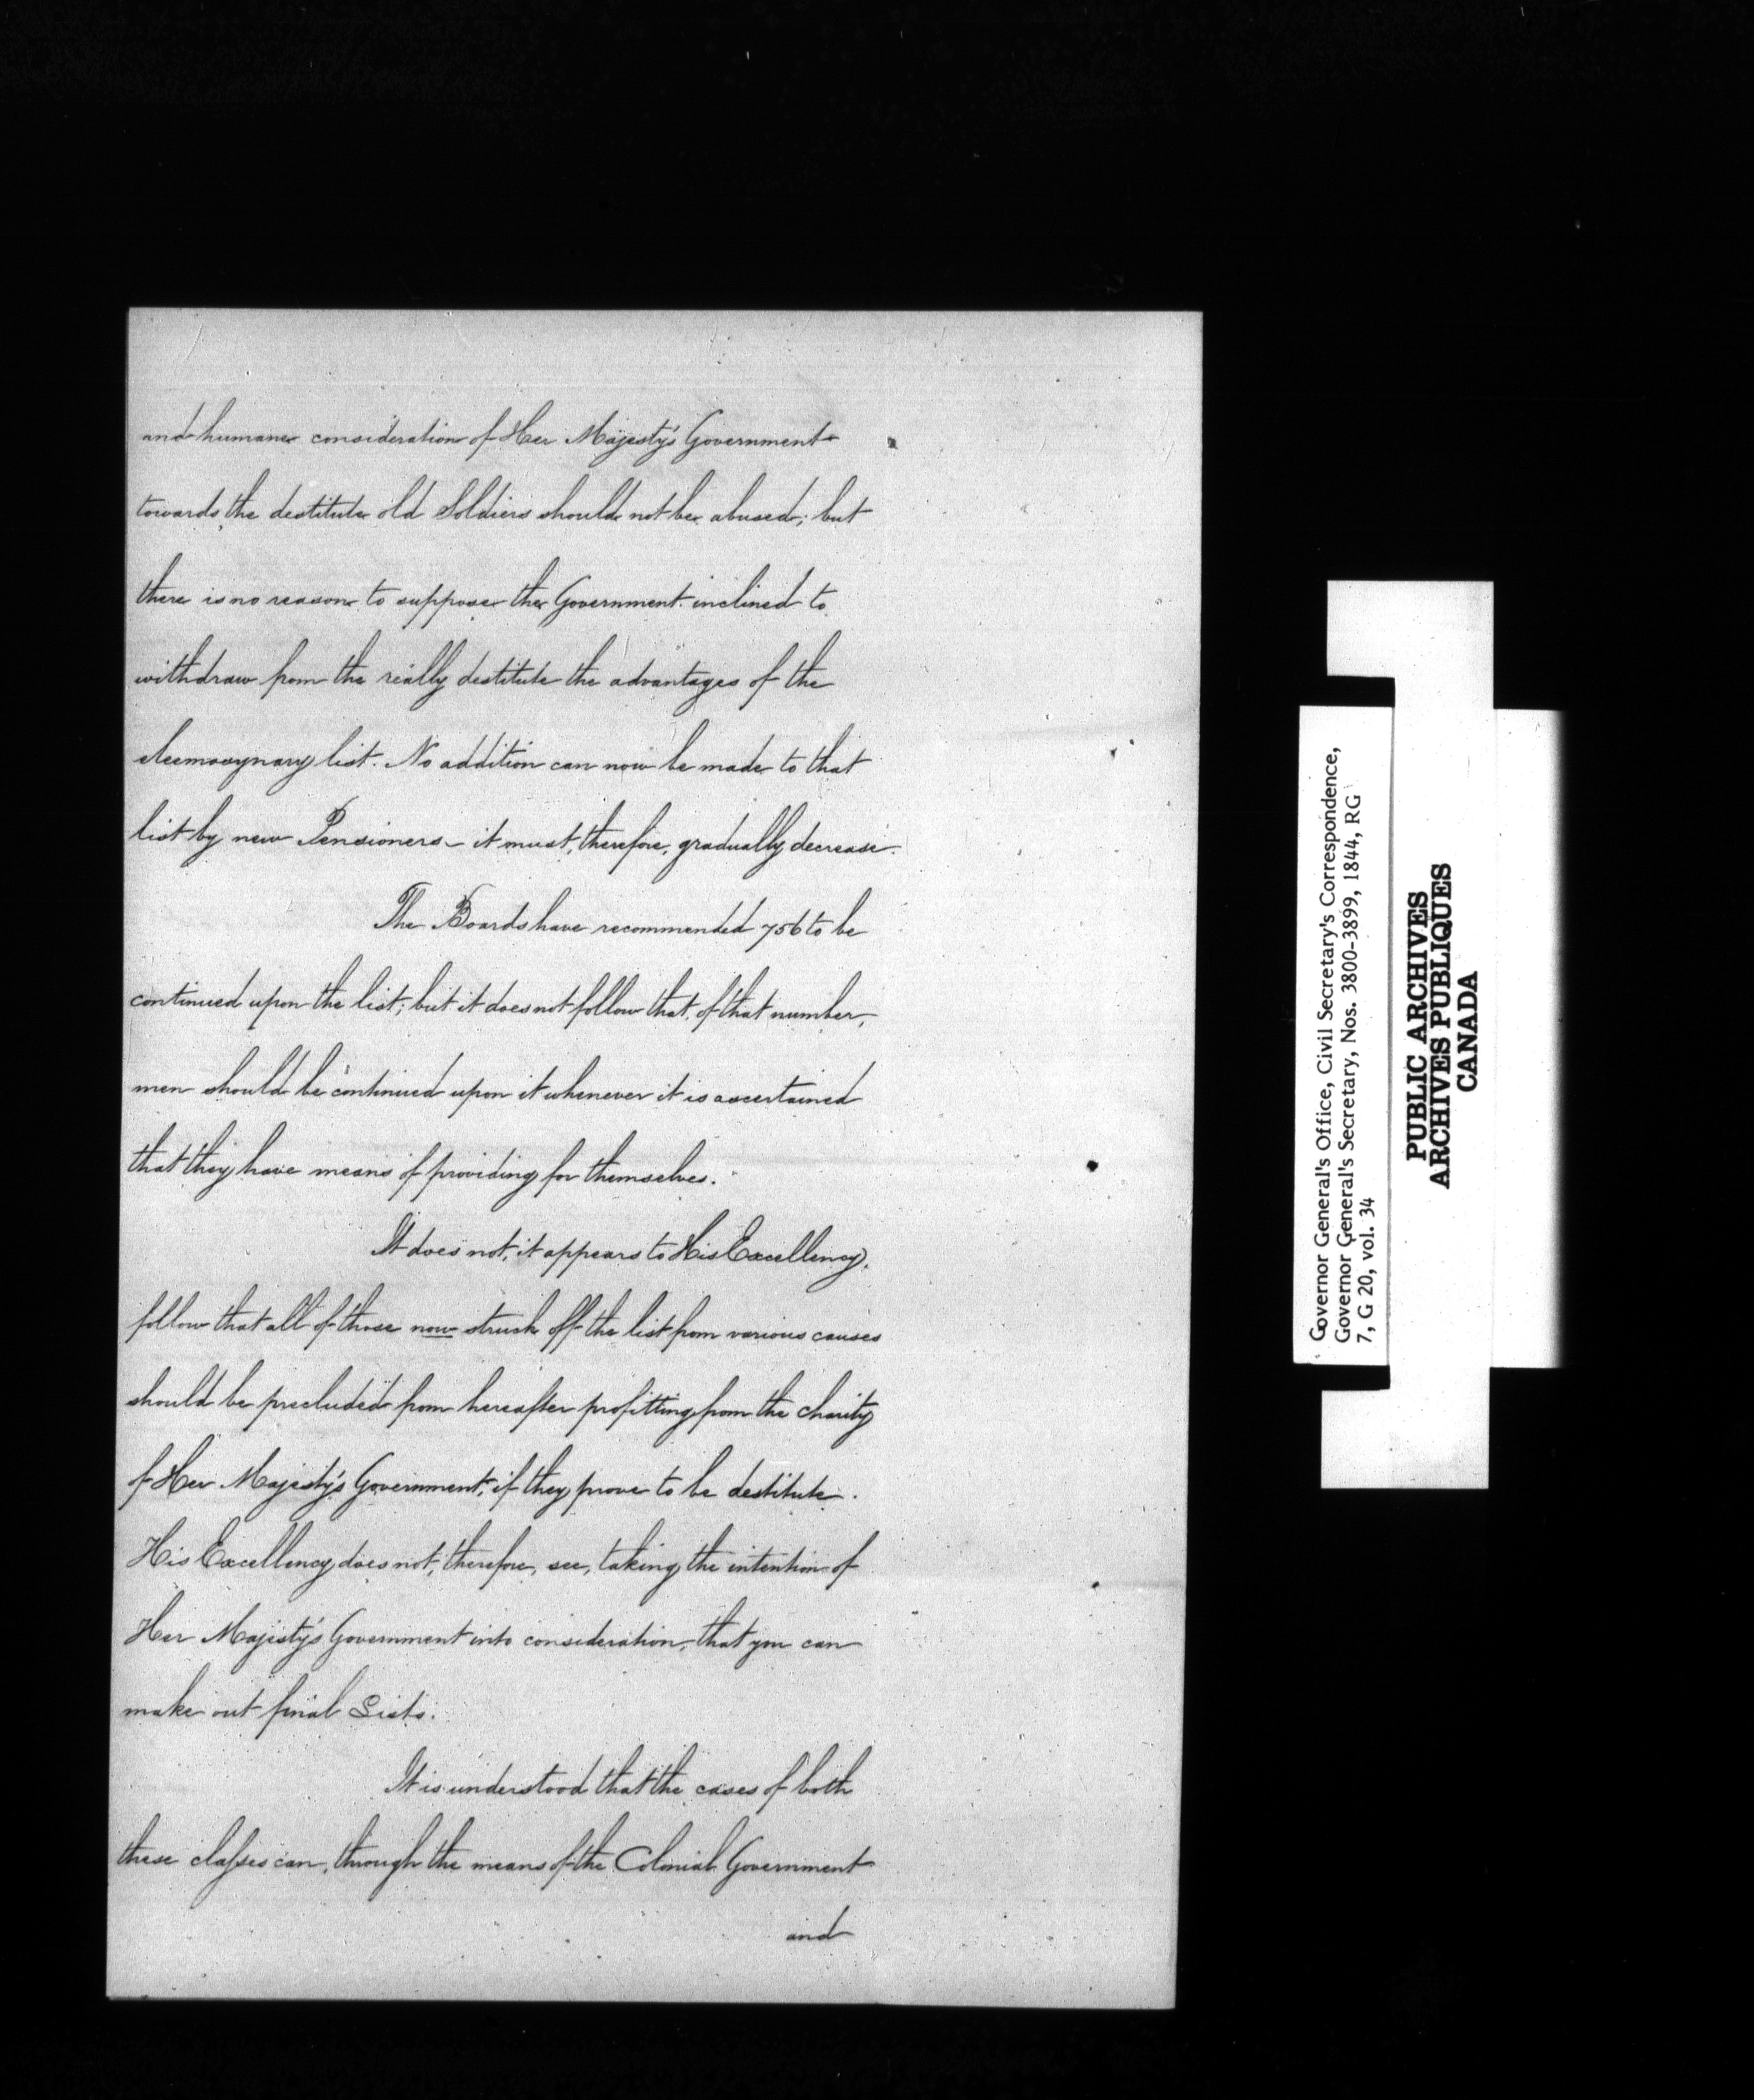 and humane consideration of Her Majesty's Government
towards the destitute old Soldiers should not be abused; but
there is no reason to suppose the Government inclined to
withdraw from the really destitute the advantages of the
eleemosynary list. No addition can now be made to that
list by new Pensioners - it must, therefore, gradually decrease.
The Boards have recommended 756 to be
continued upon the list; but it does not follow that, of that number,
men should be continued upon it whenever it is ascertained
that they have means of providing for themselves.
It does not, it appears to His Excellency,
follow that all of those now struck off the list from various causes
should be precluded from hereafter profitting from the charity
of Her Majesty's Government, if they prove to be destitute.
His Excellency does not, therefore, see, taking the intention of
Her Majesty's Government into consideration, that you can
make out final Lists.
It is understood that the cases of both
these classes can, through the means of the Colonial Government
and
Governor General's Office, Civil Secretary's Correspondence,
Governor General's Secretary, Nos. 3800-3899, 1844, RG
7, G 20, vol. 34
PUBLIC ARCHIVES
ARCHIVES PUBLIQUES
CANADA